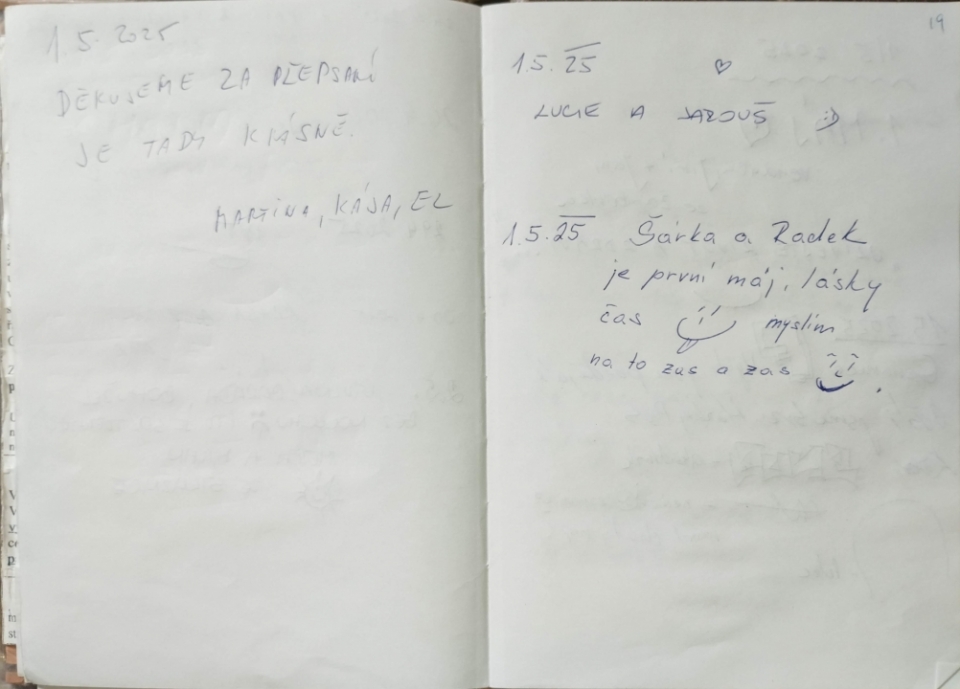 1.5. 2025
DĚKUJEME ZA PŘEPSANÍ
JE TADY KRÁSNĚ.
MARTINA, KÁJA, EL
19
1.5. 25
LUCIE A JAROUŠ :)
1.5. 25 Šárka a Radek
je první máj, lásky
čas myslím
na to zas a zas